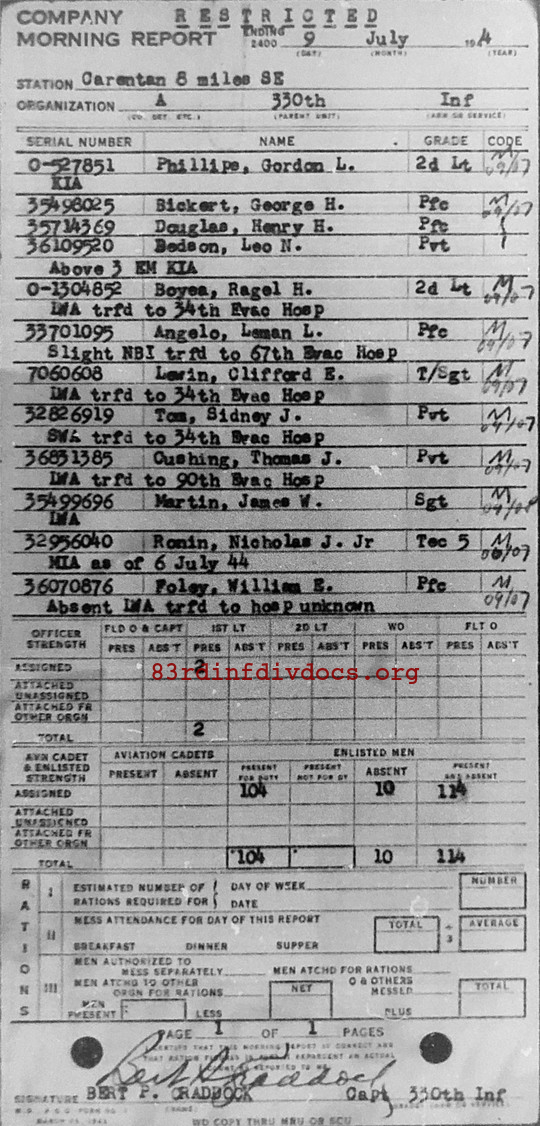 COMPANY RESTRICTED
MORNING REPORT ENDING 2400 9 July 194 4
(DAY) (MONTH) (YEAR)
STATION Carentan 8 miles SE
ORGANIZATION A 330th Inf
(CO. DET. ETC.) (PARENT UNIT) (ARM OR SERVICE)
SERIAL NUMBER NAME GRADE CODE
O-527851 Phillips, Gordon L. 2d Lt M 09/07
KIA
35498025 Bickert, George H. Pfc M 09/07
35714369 Douglas, Henry H. Pfc
36109520 Bedson, Leo N. Pvt
Above 3 EM KIA
O-1304852 Boyea, Ragel H. 2d Lt M 09/07
LWA trfd to 34th Evac Hosp
33701095 Angelo, Leman L. Pfc M 09/07
Slight NBI trfd to 67th Evac Hosp
7060608 Lewin, Clifford E. T/Sgt M 09/07
LWA trfd to 34th Evac Hosp
32826919 Tom, Sidney J. Pvt M 09/07
SWA trfd to 34th Evac Hosp
36831385 Cushing, Thomas J. Pvt M 09/07
LWA trfd to 90th Evac Hosp
35499696 Martin, James W. Sgt M
LWA
32956040 Ronin, Nicholas J. Jr Tec 5 M
MIA as of 6 July 44
36070876 Foley, William E. Pfc M 09/07
Absent LWA trfd to hosp unknown
OFFICER STRENGTH FLD O & CAPT 1ST LT 2D LT WO FLT O
PRES ABS'T PRES ABS'T PRES ABS'T PRES ABS'T PRES ABS'T
ASSIGNED 2
83rdinfdivdocs.org
ATTACHED UNASSIGNED
ATTACHED FR OTHER ORGN
TOTAL 2
AVN CADET & ENLISTED STRENGTH AVIATION CADETS ENLISTED MEN
PRESENT ABSENT PRESENT FOR DUTY PRESENT NOT FOR DY ABSENT PRESENT AND ABSENT
ASSIGNED 104 10 114
ATTACHED UNASSIGNED
ATTACHED FR OTHER ORGN
TOTAL 104 10 114
RATIONS
I ESTIMATED NUMBER OF RATIONS REQUIRED FOR DAY OF WEEK DATE NUMBER
II MESS ATTENDANCE FOR DAY OF THIS REPORT TOTAL ÷ 3 AVERAGE
BREAKFAST DINNER SUPPER
III MEN AUTHORIZED TO MESS SEPARATELY MEN ATCHD FOR RATIONS
MEN ATCHD TO OTHER ORGN FOR RATIONS NET O & OTHERS MESSED TOTAL
MEN PRESENT LESS PLUS
PAGE 1 OF 1 PAGES
I CERTIFY THAT THIS MORNING REPORT IS CORRECT AND
Bert P. Craddock
SIGNATURE BERT P. CRADDOCK Capt 330th Inf
(NAME)
WD COPY THRU MRU OR SCU